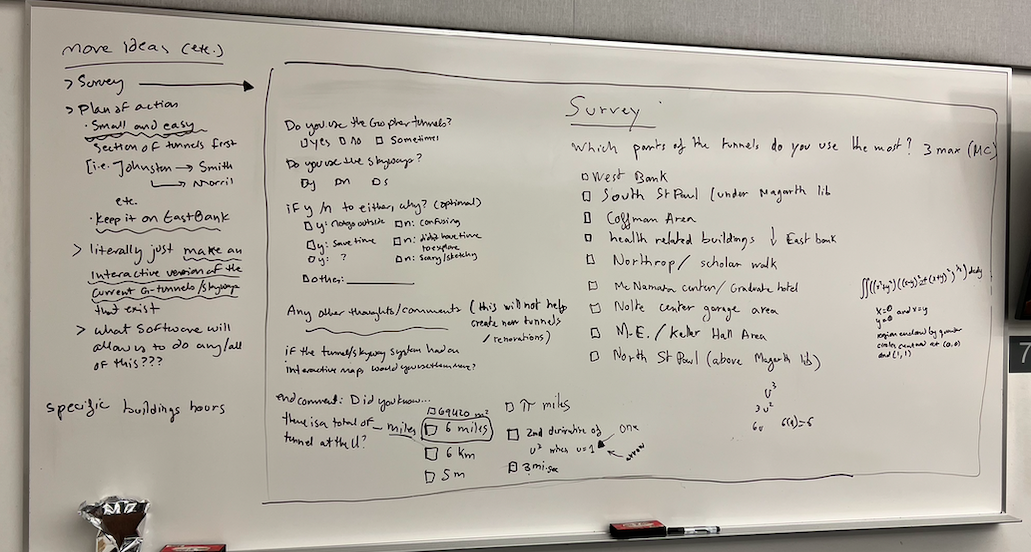 more ideas (etc.)
> Survey
> Plan of action
· Small and easy
section of tunnels first
[i.e.] Johnston → Smith
Morris
etc.
· keep it on East Bank
> literally just make an
interactive version of the
current G-tunnels/skyways
that exist
> what software will
allow us to do any/all
of this???
specific buildings hours
Survey
Do you use the Gopher tunnels?
□ yes □ no □ Sometimes
Do you use the skyways?
□ y □ n □ s
if y/n to either, why? (optional)
□ y: not go outside □ n: confusing
□ y: save time □ n: didn't have time
to explore
□ y: ? □ n: scary/sketchy
□ other:
Any other thoughts/comments (this will not help
create new tunnels
/renovations)
if the tunnel/skyway system had an
interactive maps would you use them more?
end comment: Did you know...
there is a total of _ miles
tunnel at the U?
□ 69420 m²
□ 6 miles
□ 6 km
□ 5 m
□ π miles
□ 2nd derivative of
u² when u=1
□ 3 mi.
Which parts of the tunnels do you use the most? 3 max (MC)
□ West Bank
□ South St Paul (under Magarth lib)
□ Coffman Area
□ health related buildings ↓ East bank
□ Northrop / scholar walk
□ McNamara center/ Graduate hotel
□ Nolte center garage area
□ M.E. / Keller Hall Area
□ North St Paul (above Magarth lib)
u³
3u²
6u 6(1)=6
x=0 and x=y
y=0
region enclosed by quarter
circles centered at (0,0)
and (1,1)
7